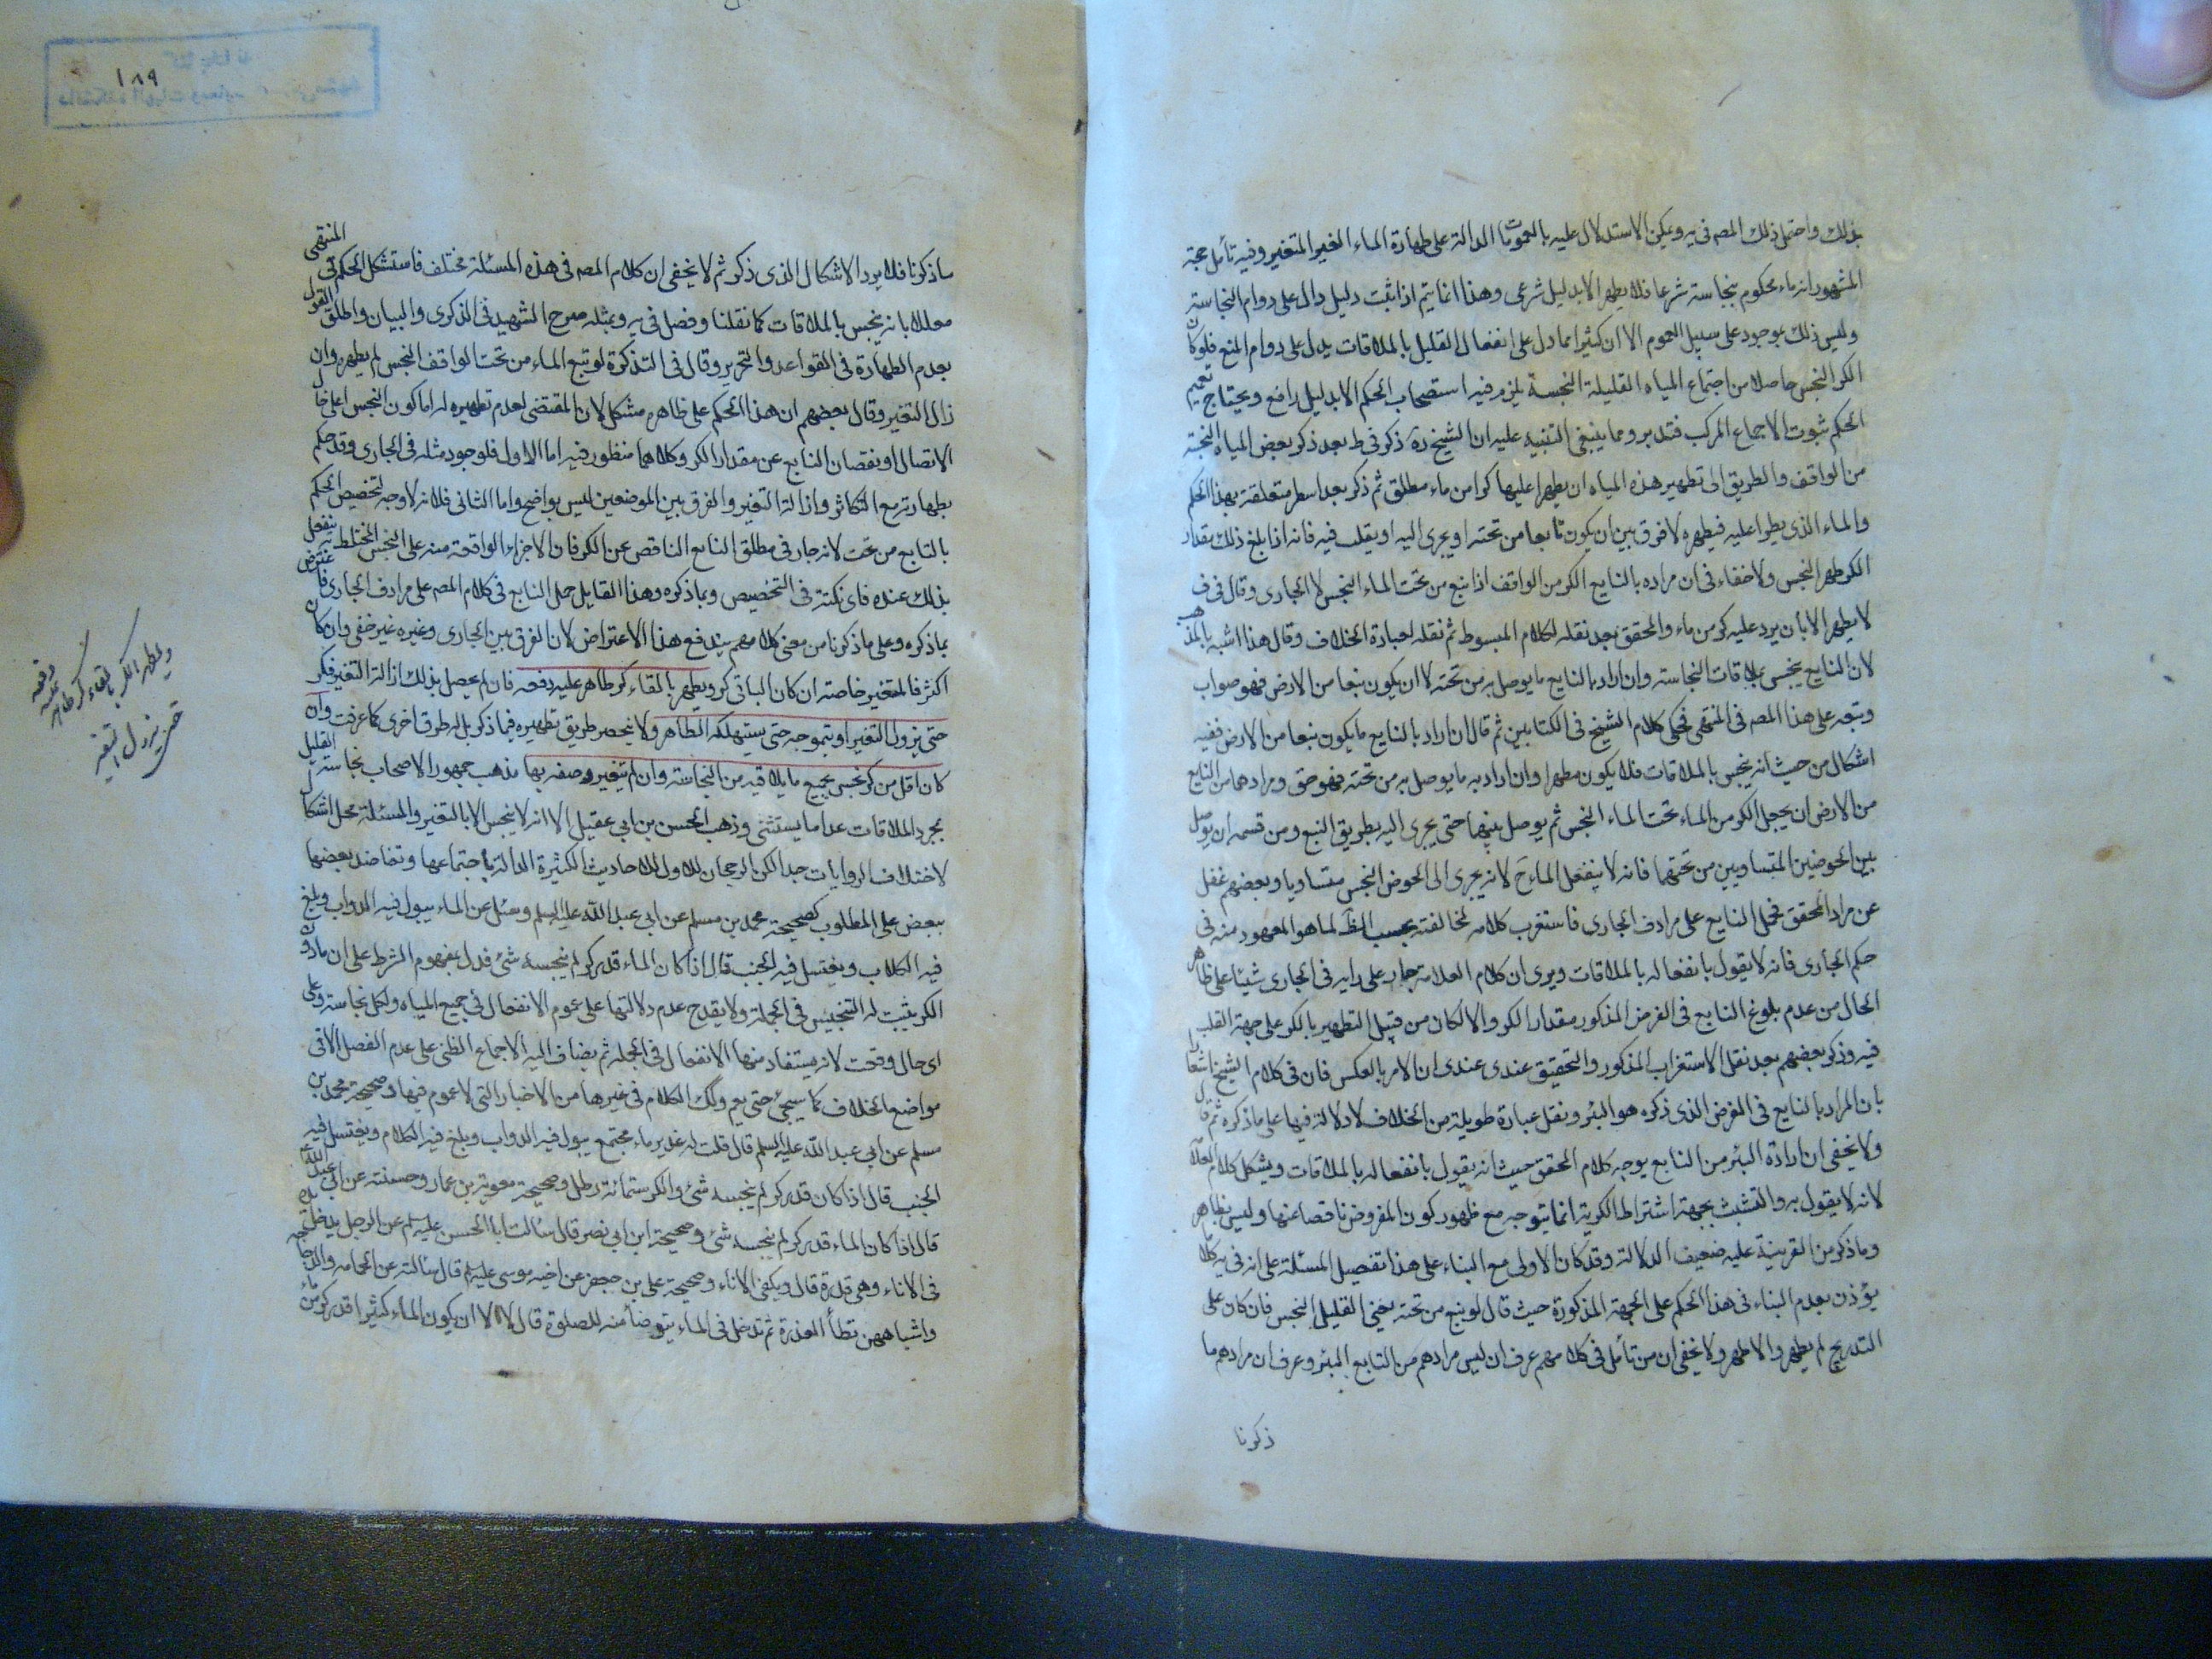 بذلك واحتمل ذلك المصه فى يه ويمكن الاستدلال عليه بالعمومات الدالة على طهارة الماء الغير المتغير وفيه تأمل حجة
المشهور انه ماء محكوم بنجاسته شرعا فلا يطهر الا بدليل شرعى وهذا انما يتم اذا ثبت دليل دال على دوام النجاسته
وليس ذلك بموجود على سبيل العموم الا ان كثيرا مما دل على انفعال القليل بالملاقات يدل على دوام المنع فلو كان
الكر النجس حاصلا من اجتماع المياه القليلة النجسة يلزم فيه استصحاب الحكم الا بدليل رافع ويحتاج تعميم
الحكم ثبوت الاجماع المركب فتدبر ومما ينبغى التنبيه عليه ان الشيخ ره ذكر فى ط بعد ذكر بعض المياه النجسة
من الواقف والطريق الى تطهير هذه المياه ان يطهرا عليها كرا من ماء مطلق ثم ذكر بعد اسطر متعلقة بهذا الحكم
والماء الذى يطرا عليه فيطهره لا فرق بين ان يكون نابعا من تحته او يجرى اليه او يقلب فيه فانه اذا بلغ ذلك مقدار
الكر طهر النجس ولا خفاء فى ان مراده بالنابع الكر من الواقف اذا نبع من تحت الماء النجس لا الجارى وقال فى ف
لا يطهر الا بان يرد عليه كر من ماء والمحقق بعد نقله لكلام المبسوط ثم نقله لعبارة الخلاف وقال هذا اشبه بالمذهب
لان النابع ينجس بملاقات النجاسته وان اراد بالنابع ما يوصل به من تحته لا ان يكون نبعا من الارض فهو صواب
وتبعه على هذا المصه فى المنتهى فحكى كلام الشيخ فى الكتابين ثم قال ان اراد بالنابع ما يكون نبعا من الارض ففيه
اشكال من حيث انه ينجس بالملاقات فلا يكون مطهرا وان اراد به ما يوصل به من تحته فهو حق ومرادهما من النابع
من الارض ان يجعل الكر من الماء تحت الماء النجس ثم يوصل بينهما حتى يجرى اليه بطريق النبع ومن قسمه ان يوصل
بين الحوضين المتساويين من تحتهما فانه لا ينفعل الماء ح لانه يجرى الى الحوض النجس متساويا وبعضهم غفل
عن مراد المحقق فحمل النابع على مرادف الجارى فاستغرب كلامه لمخالفته بحسب الظ لما هو المعهود منه فى
حكم الجارى فانه لا يقول بانفعاله بالملاقات ويرى ان كلام العلامة جار على رايه فى الجارى شيئا على ظاهر
الحال من عدم بلوغ النابع فى الفرض المذكور مقدار الكر والا لكان من قبيل التطهير بالكر على جهة القلب
فيه وذكر بعضهم بعد نقل الاستغراب المذكور والتحقيق عندى عندى ان الامر بالعكس فان فى كلام الشيخ اشعارا
بأن المراد بالنابع فى الفرض الذى ذكره هو البئر ونقل عبارة طويلة من الخلاف لا دلالة فيها على ما ذكره ثم قال
ولا يخفى ان ارادة البئر من النابع يوجه كلام المحقق حيث انه يقول بانفعاله بالملاقات ويشكل كلام العلامة
لانه لا يقول به والتشبث بجهة اشتراط الكرية انما يتوجه مع ظهور كون المفروض ناقصا عنها وليس بظاهر
وما ذكر من القرينة عليه ضعيف الدلالة وقد كان الاولى مع البناء على هذا تفصيل المسئلة على انه فى يه كلاما
يؤذن بعدم البناء فى هذا الحكم على الجهة المذكورة حيث قال لو نبع من تحته يعنى القليل النجس فان كان على
التدريج لم يطهر والا طهر ولا يخفى ان من تأمل فى كلامهم عرف ان ليس مرادهم من النابع البئر وعرف ان مرادهم ما
ذكرنا
١٨٩
ماذكرنا فلا يرد الاشكال الذى ذكر ثم لا يخفى ان كلام المصه فى هذه المسئلة مختلف فاستشكل الحكم فى المنتهى
معللا بانه ينجس بالملاقات كما نقلنا وفصل فى يه وبمثله صرح الشهيد فى الذكرى والبيان واطلق القول
بعدم الطهارة فى القواعد والتحرير وقال فى التذكرة لو نبع الماء من تحت الواقف النجس لم يطهره وان
زال التغير وقال بعضهم ان هذا الحكم على ظاهره مشكل لان المقتضى لعدم تطهيره له اما كون النجس اعلى حال
الاتصال او نقصان النابع عن مقدار الكر وكلاهما منظور فيه اما الاول فلوجود مثله فى الجارى وقد حكم
بطهارته مع التكاثر وازالة التغير والفرق بين الموضعين ليس بواضح واما الثانى فلانه لا وجه لتخصيص الحكم
بالنابع من تحت لانه جار فى مطلق النابع الناقص عن الكر فان الاجزاء الواقعة منه على النجس المختلط ينفعل
بذلك عنده فاى نكتة فى التخصيص وبما ذكره وهذا القايل حمل النابع فى كلام المصه على مرادف الجارى فاعترض
بما ذكره وعلى ما ذكرنا من معنى كلامهم يندفع هذا الاعتراض لان الفرق بين الجارى وغيره غير خفى وان كان
اكثر فالمتغير خاصة ان كان الباقى كر ويطهر بالقاء كر طاهر عليه دفعة فان لم يحصل بذلك ازالة التغير فكر
حتى يزول التغير او بتموجه حتى يستهلكه الطاهر ولا ينحصر طريق تطهيره فيما ذكر بل له طرق اخرى كما عرفت وان
كان اقل من كر نجس بجميع ما يلاقيه من النجاسته وان لم يتغير وصفه بها مذهب جمهور الاصحاب نجاسته القليل
بمجرد الملاقات عدا ما يستثنى وذهب الحسن بن ابى عقيل الا انه لا ينجس الا بالتغير والمسئلة محل اشكال
لاختلاف الروايات جدا لكن الرجحان للاول للاحاديث الكثيرة الدالة باجتماعها وتعاضد بعضها
ببعض على المطلوب كصحيحة محمد بن مسلم عن ابى عبد الله عليه السلم وسئل عن الماء يبول فيه الدواب ويلغ
فيه الكلاب ويغتسل فيه الجنب قال اذا كان الماء قدر كر لم ينجسه شئ فدل بمفهوم الشرط على ان مادون
الكر يثبت له التنجيس فى الجملة ولا يقدح عدم دلالتها على عموم الانفعال فى جميع المياه ولكل نجاسته وعلى
اى حال وقعت لانه يستفاد منها الانفعال فى الجملة ثم يضاف اليه الاجماع الظنى على عدم الفصل الا فى
مواضع الخلاف كما سيجئ حتى يعم وكك الكلام فى غيرها من الاخبار التى لا عموم فيها وصحيحة محمد بن
مسلم عن ابى عبد الله عليه السلم قال قلت له غدير ماء مجتمع يبول فيه الدواب ويلغ فيه الكلام ويغتسل فيه
الجنب قال اذا كان قدر كر لم ينجسه شئ والكر ستمائة رطل وصحيحة معوية بن عمار وحسنته عن ابى عبد الله
قال اذا كان الماء قدر كر لم ينجسه شئ وصحيحة ابن ابى نصر قال سئالت ابا الحسن عليه السلم عن الرجل يدخل يده
فى الاناء وهى قذرة قال ويكفى الاناء وصحيحة على بن جعفر عن اخيه موسى عليه السلم قال سئالته عن الحمامه والدجاجه
واشباههن تطأ العذرة ثم تدخل فى الماء يتوضأ منه للصلوة قال لا الا ان يكون الماء كثيرا قدر كر من ماء
ويطهر الكر بالقاء كر طاهر
عليه دفعة
حتى يزول التغير